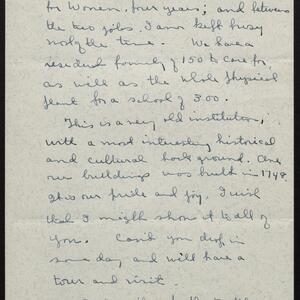 for Women, four years; and between
the two jobs, I am kept busy
most of the time. We have a
resident family of 150 to care for,
as well as the whole physical
plant for a school of 300.
This is a very old institution,
with a most interesting historical
and cultural back ground. One
our buildings was built in 1748.
It is our pride and joy. I wish
that I might show it to all of
you. Can't you drop in
some day and will have a
tour and visit.